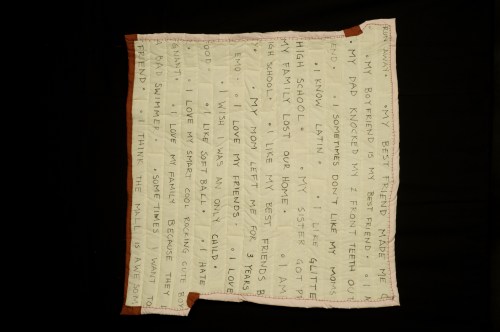 AWAY. • MY BEST FRIEND MADE ME
• MY BOYFRIEND IS MY BEST FRIEND • I
• MY DAD KNOCKED MY 2 FRONT TEETH OUT
END • I SOMETIMES DON'T LIKE MY MOMS
• I KNOW LATIN • I LIKE GLITTE
HIGH SCHOOL • MY SISTER GOT PR
MY FAMILY LOST OUR HOME • I AM
IGH SCHOOL • I LIKE MY BEST FRIENDS B
Y. • MY MOM LEFT ME FOR 3 YEARS
EMO • I LOVE MY FRIENDS • I LOVE
• I WISH I WAS AN ONLY CHILD •
OOD • I LIKE SOFT BALL • I HATE
• I LOVE MY SMART COOL ROCKING CUTE BOY
GNANT • I LOVE MY FAMILY BECAUSE THEY
A DAD SWIMMER • SOMETIMES I WANT TO
FRIEND • I THINK THE MALL IS AWESOM